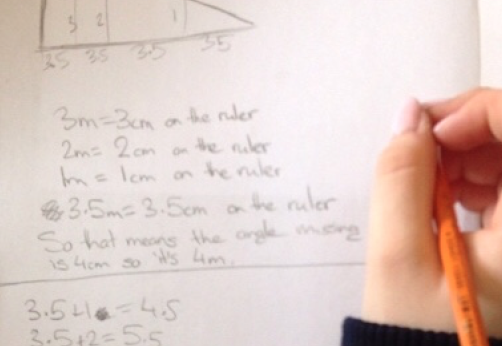 3 2 1
3.5 3.5 3.5 3.5
3m = 3cm on the ruler
2m = 2cm on the ruler
1m = 1cm on the ruler
3.5m = 3.5cm on the ruler
So that means the angle missing
is 4cm so it's 4m.
3.5+1 = 4.5
3.5+2 = 5.5